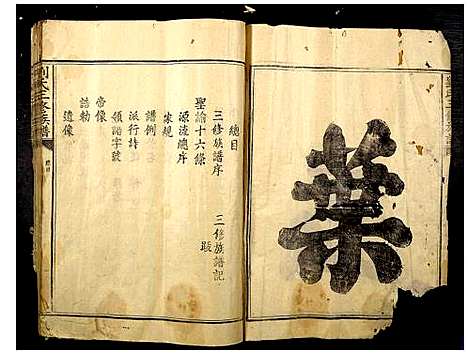 葉
總目
三修族譜序 三修族譜記
聖諭十六條 跋
源流總序
家規
譜例
派行詩
領譜字號
帝像
誥勅
遺像
劉氏三修族譜
總目